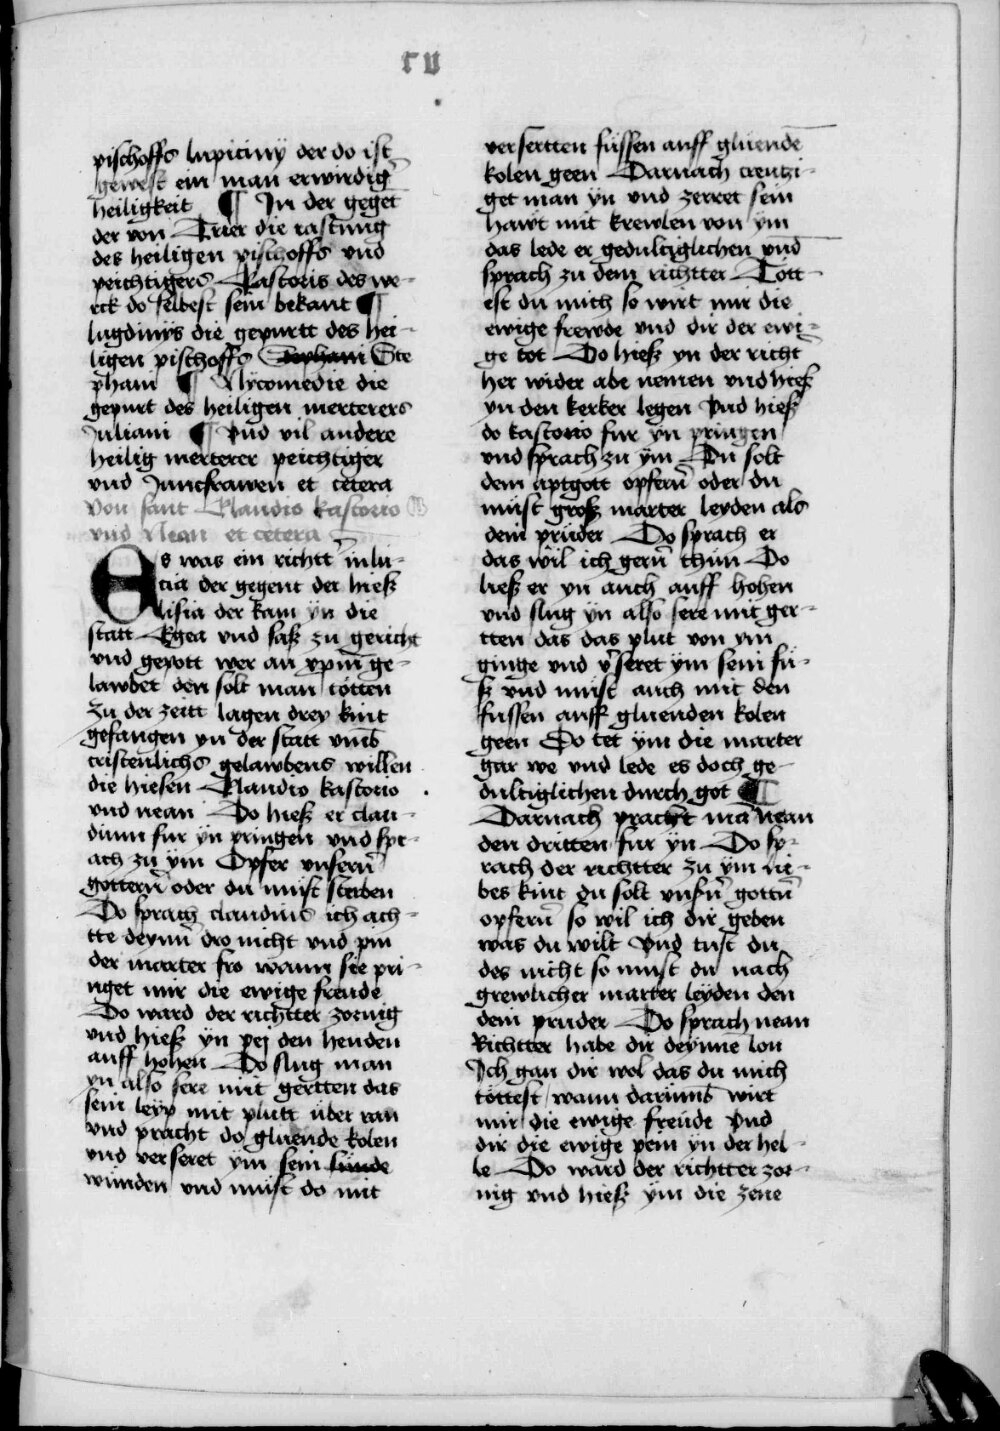 cv
pischoffs lupiciny der do ist
gewest ein man erwirdig̃
heiligkeit ¶ In der geget
der von Trier die rastung
des heiligen pischoffs vnd
peichtigers Pastoris des we-
rck do selbest sein bekant ¶
lugdinys die gepurtt des hei-
ligen pischoffs Stephani Ste
phani ¶ Nycomedie die
gepurt des heiligen merterers
Juliani ¶ Vnd vil andere
heilig merterer peichtiger
vnd Junckfrawen et cetera
Von sant Klaudio kastorio
vnd Nean et cetera
Es was ein richtt̃ in lu-
cia der gegent der hieß
lisia der kam yn die
statt Egea vnd saß zu gericht
vnd gepott wer an xpm̃ ge-
lawbet den solt man totten
Zu der zeitt lagen drey kint
gefangen yn der statt vm̃b
cristenlichs gelawbens willen
die hiesen Klaudio kastorio
vnd nean Do hieß er clau-
dium fur yn pringen vnd spr-
ach zu ym Opfer vnsern̄
gottern̄ oder du must sterben
Do sprach claudius ich ach-
tte deynn̄ dro nicht vnd pin
der marter fro wann sie pri-
nget mir die ewige freude
Do ward der richtter zornig
vnd hieß yn pej den henden
auff hohen Do slug man
yn also sere mit gertten das
sein leyp mit plutt über ran
vnd pracht do gluende kolen
vnd verseret ym sein sunde
wunden vnd must do mit
versertten füssen auff gluende
kolen geen Darnach creutzi-
get man yn vnd zerret sein
hawt mit krewlen von ym
das lede er gedultiglichen vnd
sprach zu dem richtter Tött-
est du mich so wirt mir die
ewige frewde vnd dir der ewi-
ge tot Do hieß yn der richt̃
her wider abe nemen vnd hieß
yn den kerker legen Vnd hieß
do kastorio fur yn pringen
vnd sprach zu ym Du solt
dem aptgott opfern̄ oder du
must groß marter leyden als
dein prüder Do sprach er
das wil ich gern̄ thun Do
ließ er yn auch auff hohen
vnd slug yn also sere mit ger-
tten das das plut von ym
ginge vnd v̄seret ym sein fü-
ß vnd must auch mit den
fussen auff gluenden kolen
geen Do tet ym die marter
gar we vnd lede es doch ge-
dultiglichen durch got ¶
Darnach pracht mā nean
den dritten fur yn Do sp-
rach der richtter zu ym lie-
bes kint du solt vnsn̄ gottn̄
opfern̄ so wil ich dir geben
was du wilt Vnd tust du
des nicht so must du nach
grewlicher marter leyden den
dein pruder Do sprach nean
Richtter habe dir deynne lon
Ich gan dir wol das du mich
tottest wann darum̃b wirt
mir die ewige freude Vnd
dir die ewige pein yn der hel-
le Do ward der richtter zor-
nig vnd hieß ym die zene